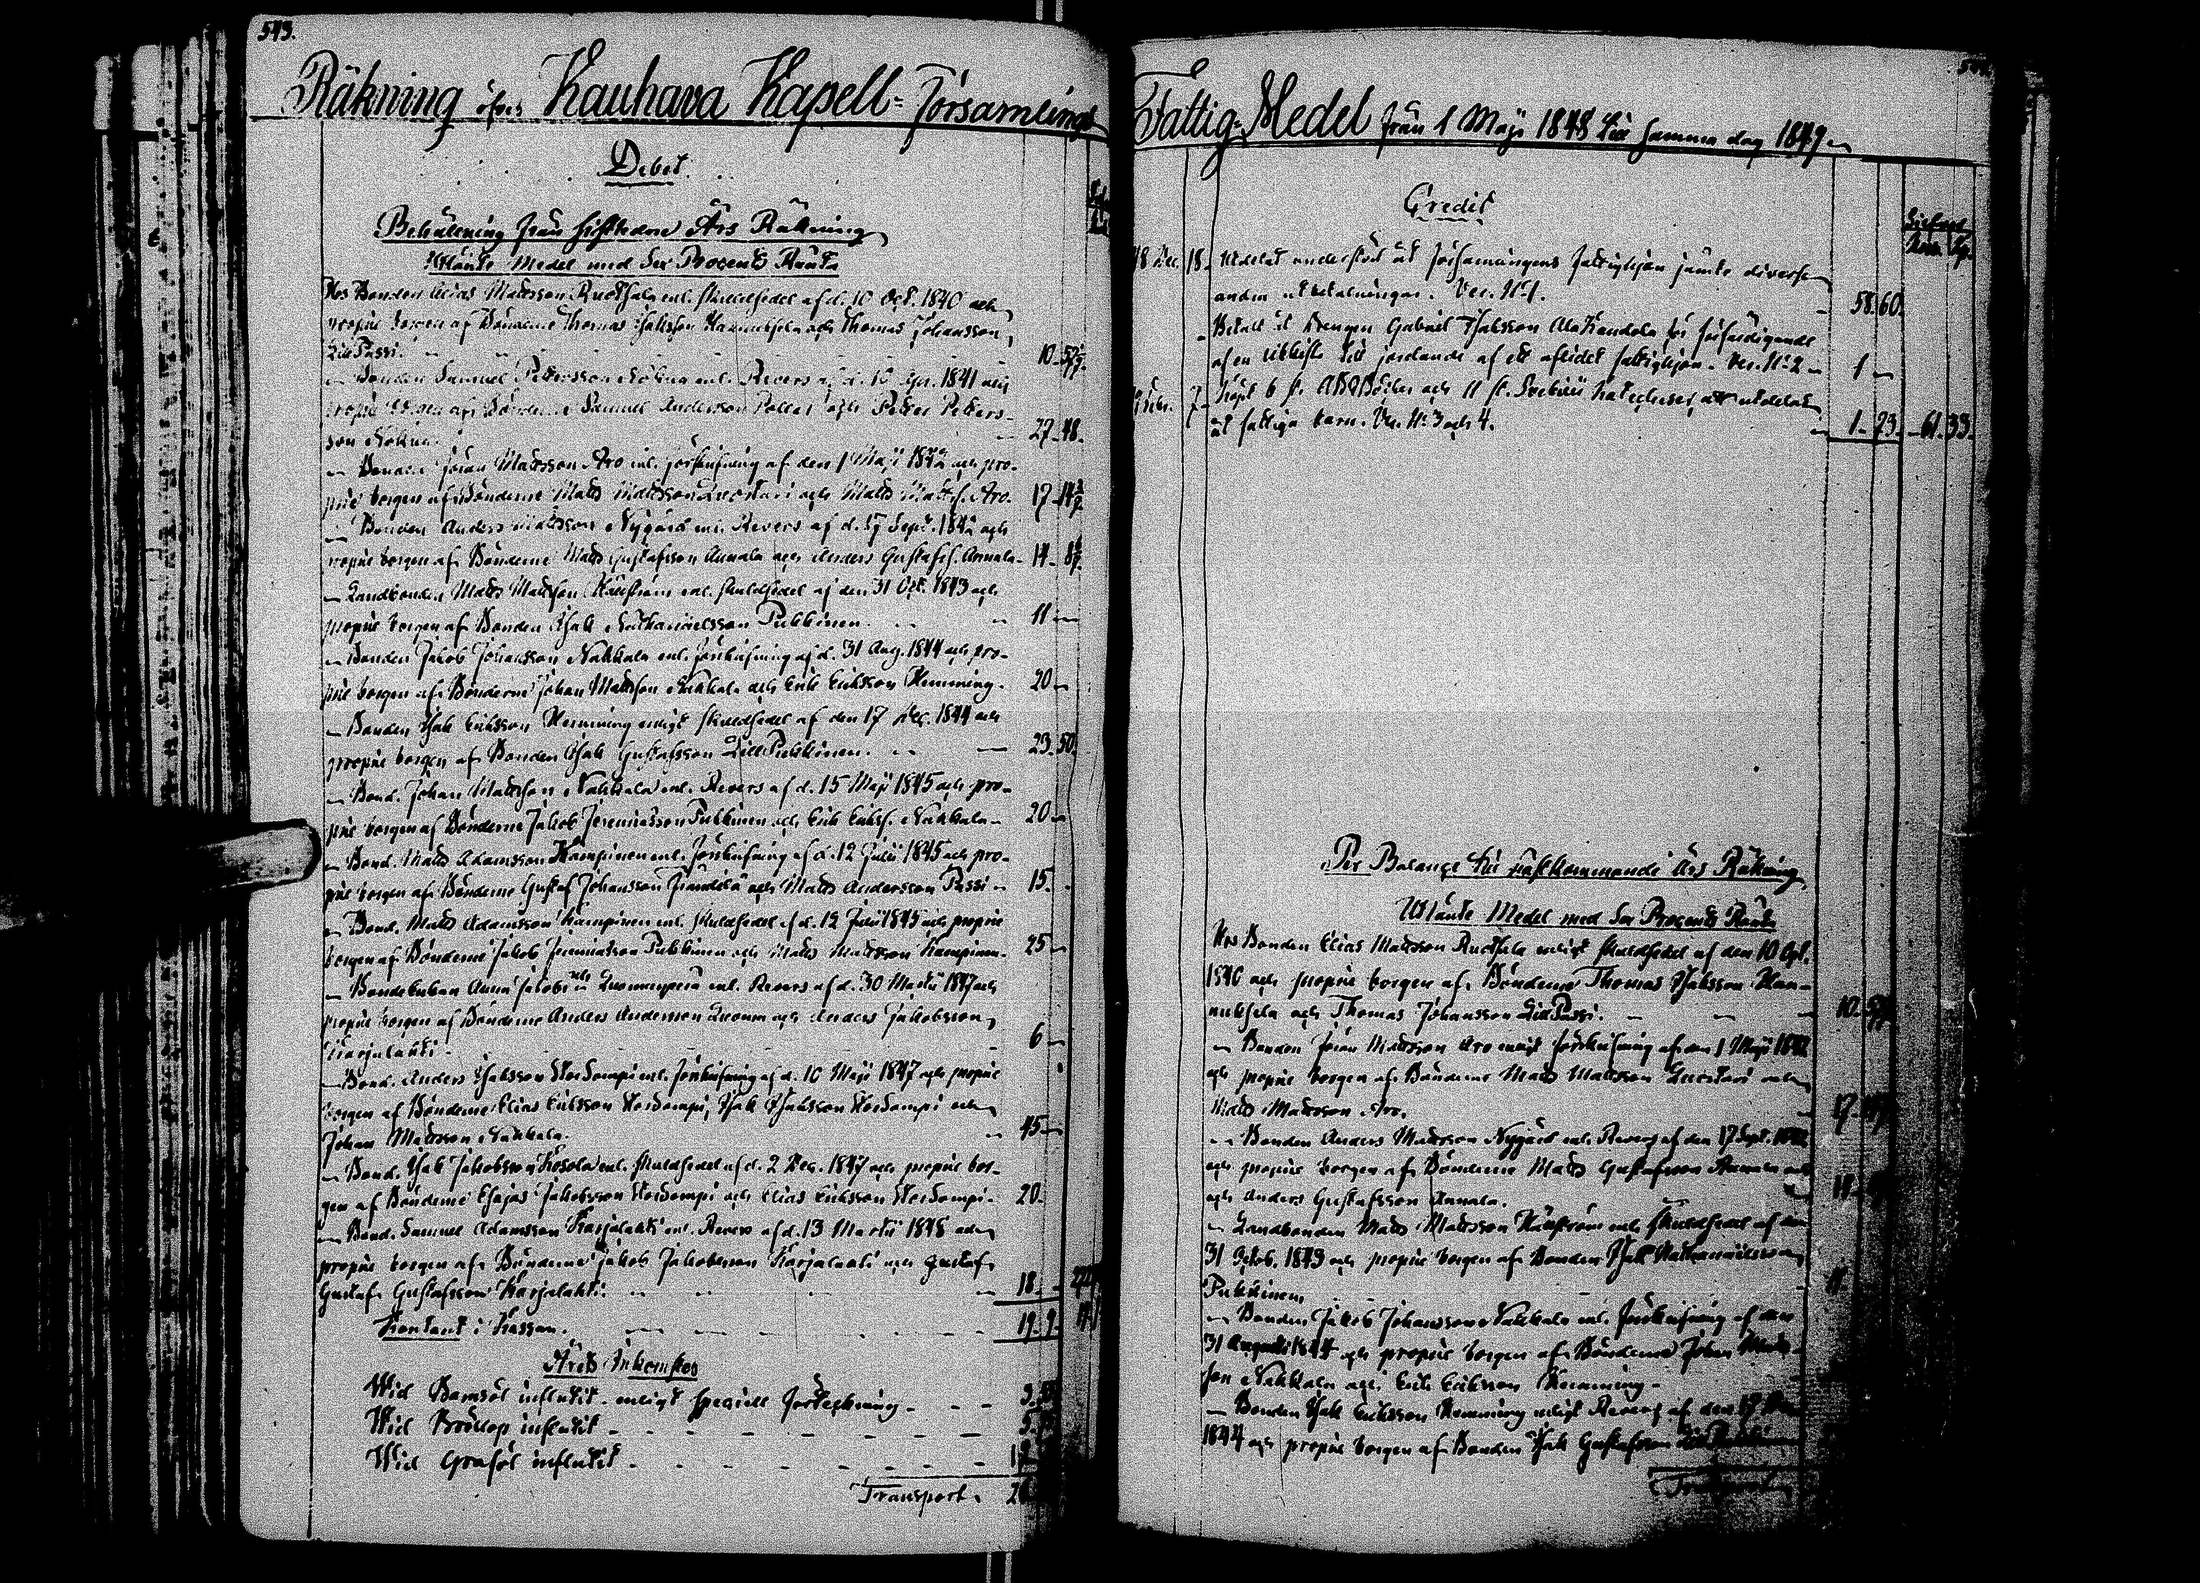 543.
Räkning öfver Kauhava Kapell-Församlings
Debet
Behållning från sistledne Års Räkning
Utlånte Medel med Sex Procents Ränta
Hos Bonden Elias Mattsson Ruotsala enl. skuldsedel af d. 10 Oct. 1840 och
proprie borgen af Bönderne Thomas Isaksson Hannuksela och Thomas Johansson
Lill Passi. 10. 52
- Bonden Samuel Pettersson enl. Revers af d. 1841 och
proprie borgen af Bönderne Samuel Andersson och Petter Petters-
son 27. 48.
- Bonden Jöran Mattsson Aro enl. förskrifning af den 1 Maji 1842 och pro-
prie borgen af Bönderne Matts Mattsson Luostari och Matts Matts. Aro. 17. 14
- Bonden Anders Mattsson Nygård enl. Revers af d. 17 Sept. 1842 och
proprie borgen af Bönderne Matts Gustafsson Annala och Anders Gustafss. Annala 14. 8
- Landbonden Matts Mattsson enl. skuldsedel af den 31 Oct. 1843 och
proprie borgen af Bonden Isak Nathanaelsson Pukkinen. 11 -
- Bonden Jakob Johansson Nahkala enl. förskrifning af d. 31 Aug. 1844 och pro-
prie borgen af Bönderne Johan Mattsson Nahkala och Erik Eriksson Hemming. 20 -
- Bonden Isak Eriksson Hemming enligt skuldsedel af den 17 Dec. 1844 och
proprie borgen af Bonden Isak Gustafsson Lill Pukkinen. 23. 50.
- Bond. Johan Mattsson Nahkala enl. Revers af d. 15 Maji 1845 och pro-
prie borgen af Bönderne Jakob Jeremiasson Pukkinen och Erik Erikss. Nahkala 20 -
- Bond. Matts Adamsson Kampinen enl. förskrifning af d. 12 Julii 1845 och pro-
prie borgen af Bönderne Gustaf Johansson och Matts Andersson Passi 15.
- Bond. Matts Adamsson Kampinen enl. skuldsedel af d. 12 Julii 1845 och proprie
borgen af Bönderne Jakob Jeremiasson Pukkinen och Matts Mattsson Kampinen. 25 -
- Bondeenkan Anna Jakobs enl. Revers af d. 30 Martii 1847 och
proprie borgen af Bönderne Anders Andersson Luoma och Anders Jakobsson
Karjalahti. 6 -
- Bond. Anders Isaksson enl. förskrifning af d. 10 Maji 1847 och proprie
borgen af Bönderne Elias Eriksson, Isak Isaksson och
Johan Mattsson Nahkala. 45 -
- Bond. Isak Jakobsson Kosola enl. skuldsedel af d. 2 Dec. 1847 och proprie bor-
gen af Bönderne Esajas Jakobsson och Elias Eriksson 20.
- Bond. Samuel Adamsson Karjalahti enl. Revers af d. 13 Martii 1848 och
proprie borgen af Bönderne Jakob Jakobsson Karjalahti och Gustaf
Gustaf Gustafsson Karjalahti. 18.
Kontant i Kassan. 19. 9.
Årets Inkomster
Wid Barnsöl influtit enligt speciell förteckning 3.
Wid Bröllop influtit 5.
Wid Grafsöl influtit
Transport.
Fattig-Medel från 1 Maji 1848 till samma dag 1849
Credit
Silfver
Rub. Kop.
48 Dec. 18. Utdelat understöd åt församlingens fattighjon jämte diverse
andra utbetalningar. Ver. N:o 1. 58. 60.
- Betalt åt Drengen Gabriel Isaksson Ala Kandola för förfärdigande
af en likkista till jordande af ett aflidet fattighjon. Ver. N:o 2 1 -
7 Köpt 6 st. ABC Böcker och 11 st. Svebilii Katecheser att utdelas
åt fattiga barn. Ver. N:o 3 och 4. 1. 73. 61. 33.
Per Balance till nästkommande Års Räkning
Utlånte Medel med Sex Procents Ränta
Hos Bonden Elias Mattsson Ruotsala enligt skuldsedel af den 10 Oct.
1840 och proprie borgen af Bönderne Thomas Isaksson Han-
nuksela och Thomas Johansson Lill Passi. 10.
- Bonden Jöran Mattsson Aro enligt förskrifning af den 1 Maji 1842
och proprie borgen af Bönderne Matts Mattsson Luostari och
Matts Mattsson Aro. 17.
- Bonden Anders Mattsson Nygård enl. Revers af den 17 Sept. 1842
och proprie borgen af Bönderne Matts Gustafsson Annala och
och Anders Gustafsson Annala. 14.
- Landbonden Matts Mattsson enl. skuldsedel af den
31 Octob. 1843 och proprie borgen af Bonden Isak Nathanaelsson
Pukkinen 11.
- Bonden Jakob Johansson Nahkala enl. förskrifning af den
31 Augusti 1844 och proprie borgen af Bönderne Johan Matts-
son Nahkala och Erik Eriksson Hemming.
- Bonden Isak Eriksson Hemming enligt Revers af den 17
1844 och proprie borgen af Bonden Isak Gustafsson Lill Pukkinen
Transport